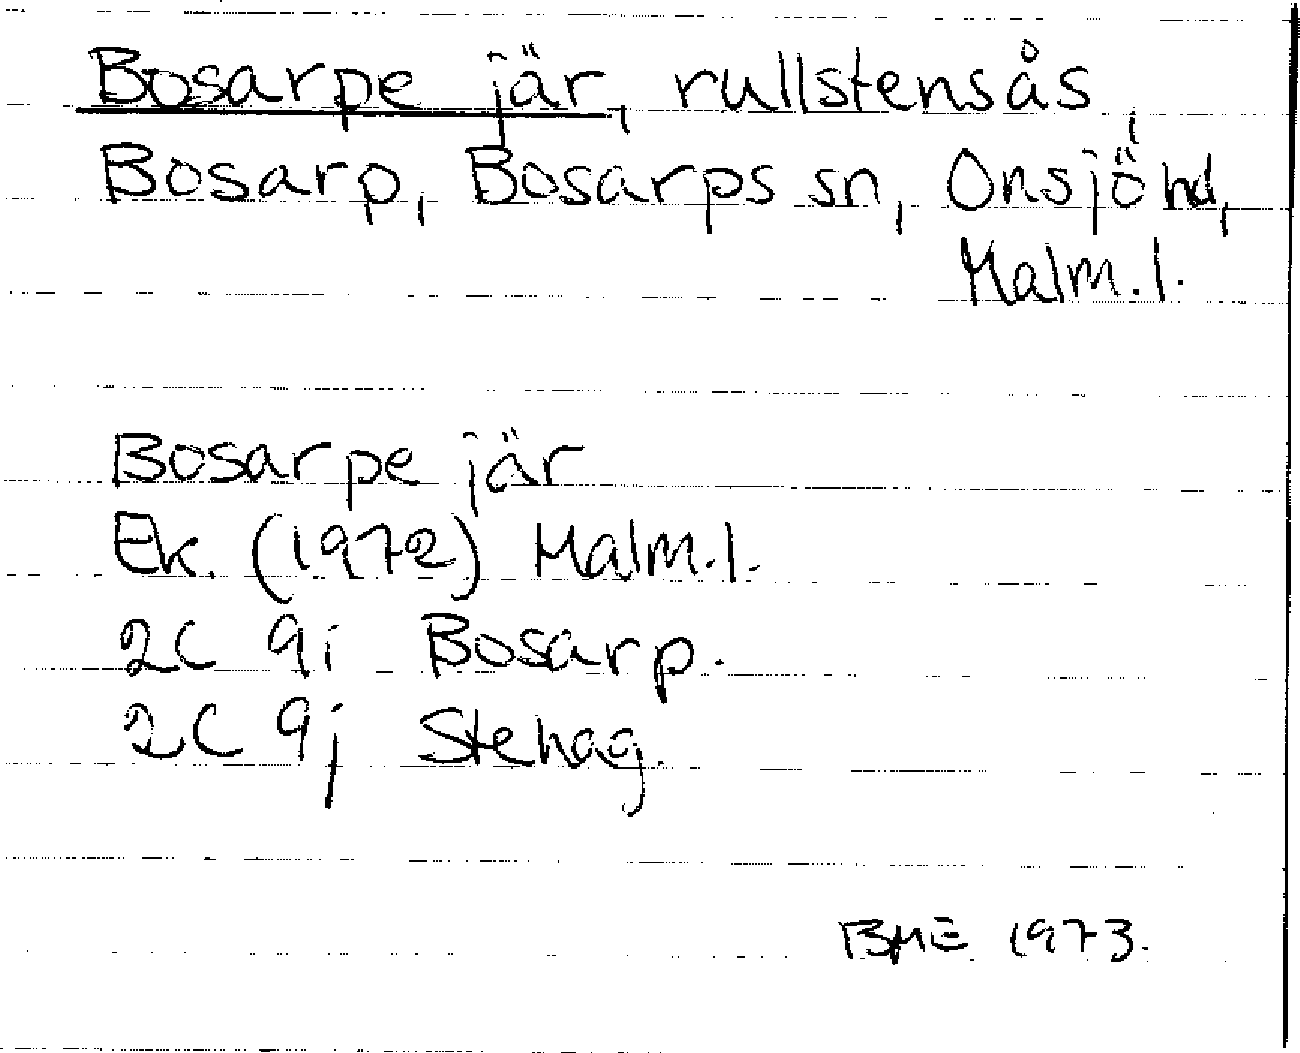 Bosarpe jär, rullstensås,
Bosarp, Bosarps sn, Onsjö hd,
Malm.l.
Bosarpe jär
Ek. (1972) Malm.l.
2C 9i Bosarp.
2C 9j Stehag.
BME 1973.